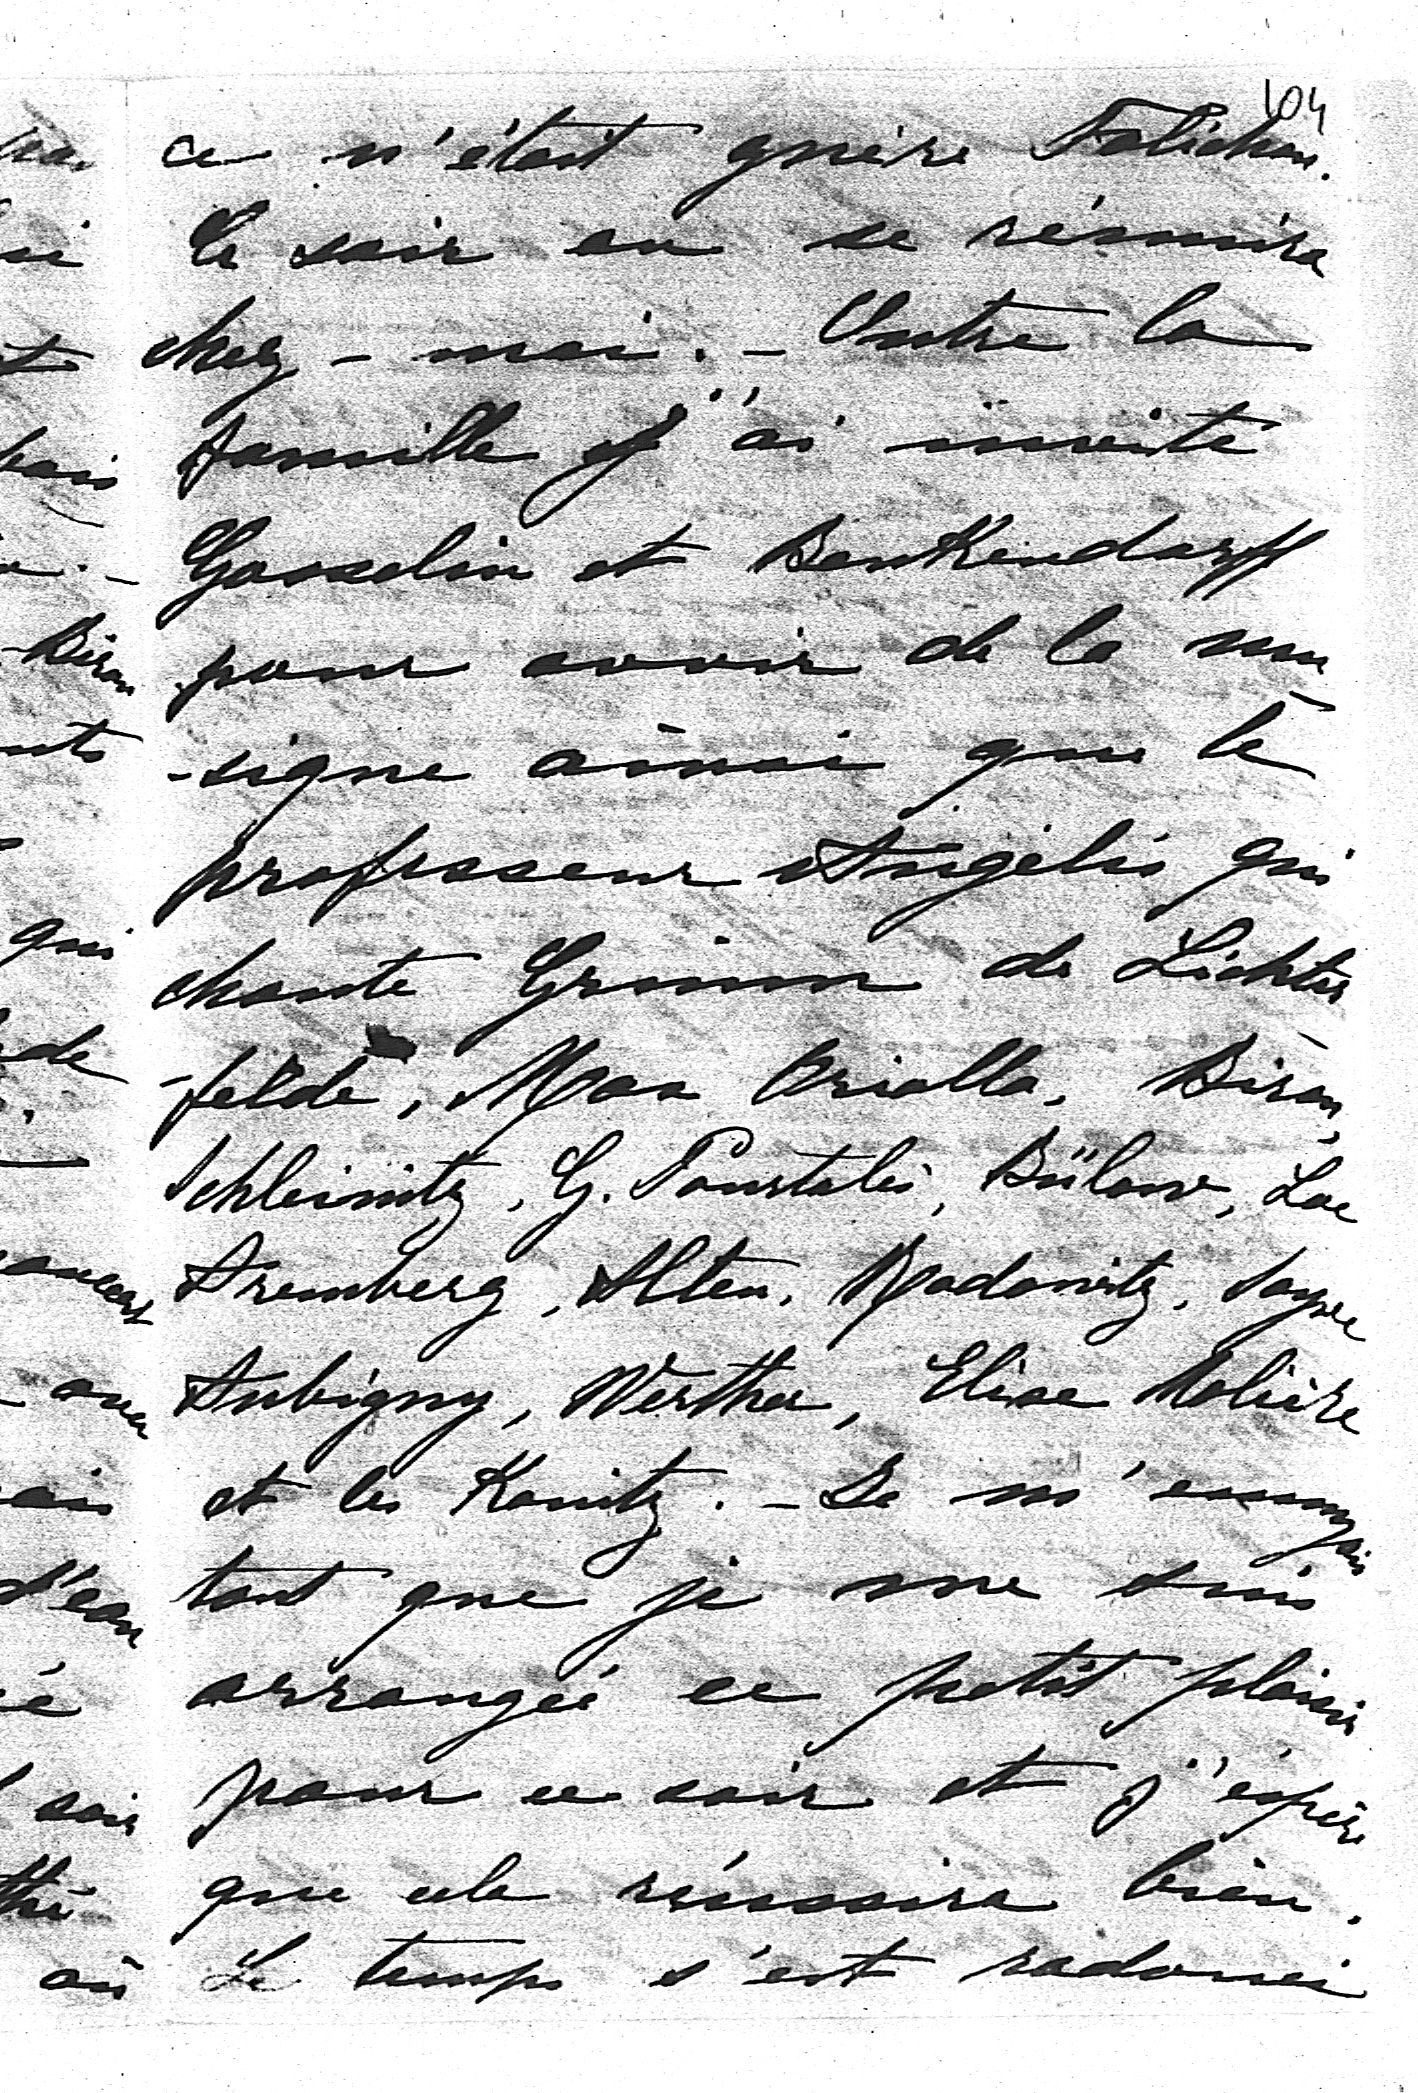 104
ce n'était guère Folichon.
Ce soir on se réunira
chez-moi. - Outre la
famille j'ai invité
Gosselin et Benkendorff
pour avoir de la mu
-sique ainsi que le
professeur Angélis qui
chante Grimm de Lichter
-felde, Max Oriolla, Biron,
Schleinitz, G. Pourtalès, Bülow, Loe
Aremberg, Alten, Radowitz,
Aubigny, Werther, Elise
et les Kanitz. - Je m'ennuyais
tant que je me suis
arrangée ce petit plaisir
pour ce soir et j'éspère
que cela réussira bien.
Le temps s'est radouci
qui
Biron
d'eau
soir
où